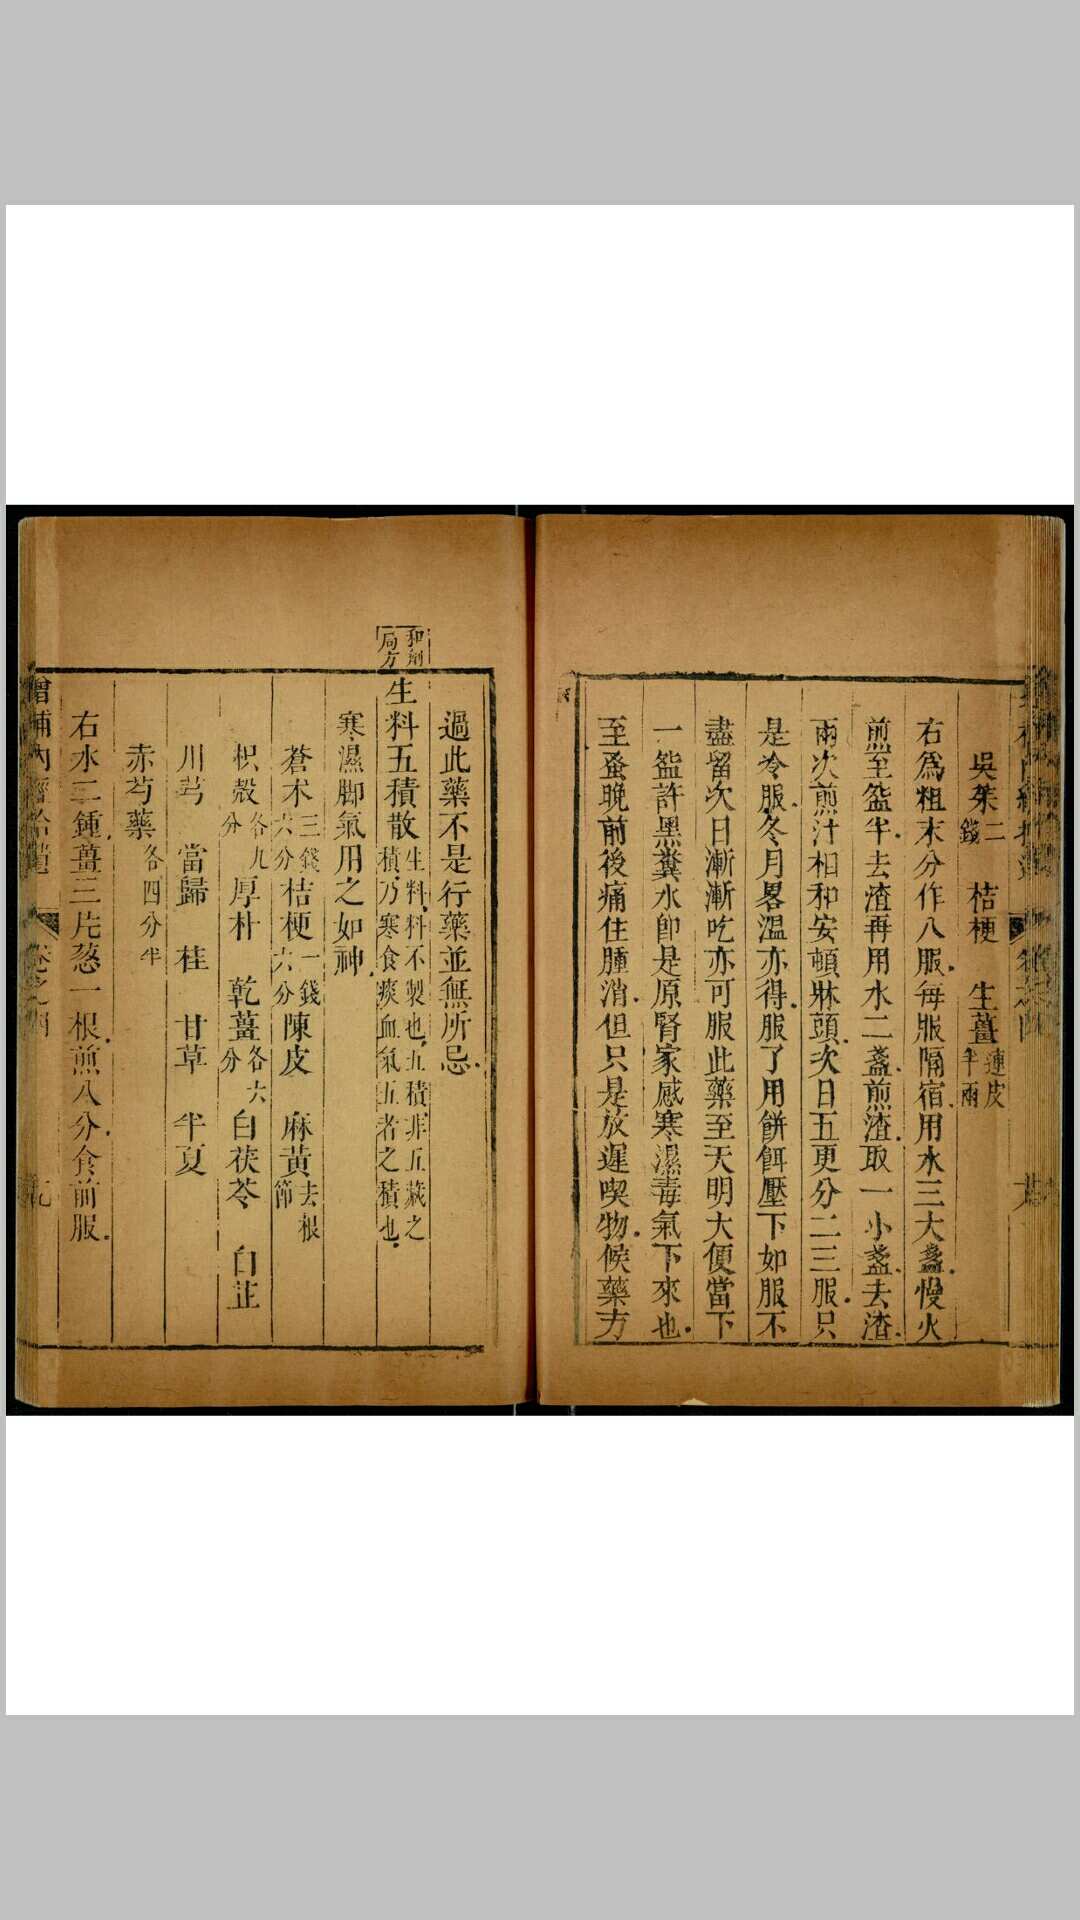 吳茱二錢 桔梗 生薑連皮半兩
右爲粗末分作八服每服隔宿用水三大盞慢火
煎至盌半去渣再用水二盞煎渣取一小盞去渣
兩次煎汁相和安頓牀頭次日五更分二三服只
是冷服冬月畧溫亦得服了用餅餌壓下如服不
盡留次日漸漸吃亦可服此藥至天明大便當下
一盌許黑糞水卽是原腎家感寒濕毒氣下來也
至蚤晚前後痛住腫消但只是放遲喫物候藥力
過此藥不是行藥並無所忌
和劑局方
生料五積散生料料不製也五積非五藏之積乃寒食痰血氣五者之積也
寒濕脚氣用之如神
蒼术三錢六分桔梗一錢六分陳皮 麻黃去根節
枳殼各九分厚朴 乾薑各六分白茯苓 白芷
川芎 當歸 桂 甘草 半夏
赤芍藥各四分半
右水二鍾薑三片葱一根煎八分食前服
增補內經拾遺 卷之四